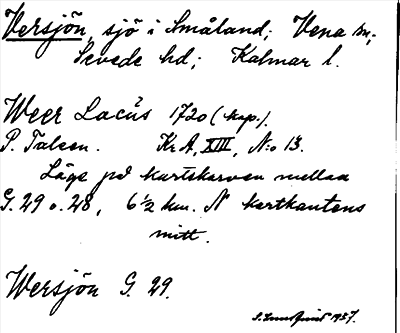 Versjön, sjö i Småland; Vena sn;
Sevede hd; Kalmar l.
Weer Lacus 1720 (kop.).
P. Talcen. Kr A, XIII, N:o 13.
Läge på kartskarven mellan
G. 29 o. 28, 6 1/2 km. N kartkantens
mitt.
Wersjön G. 29.
1937.